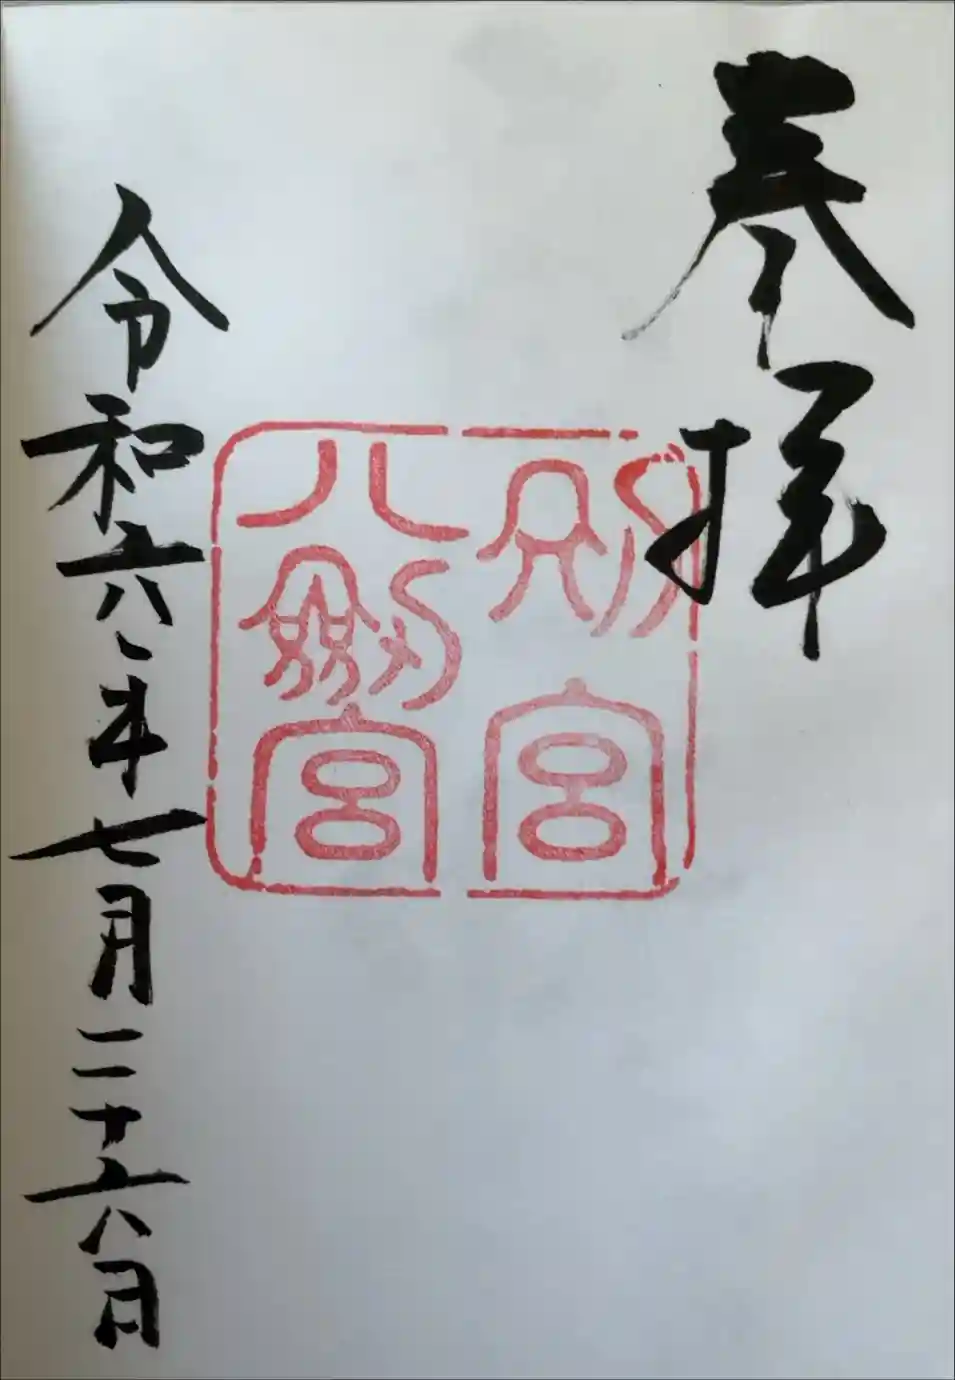 奉拝
別宮
八劔宮
令和六年七月二十六日